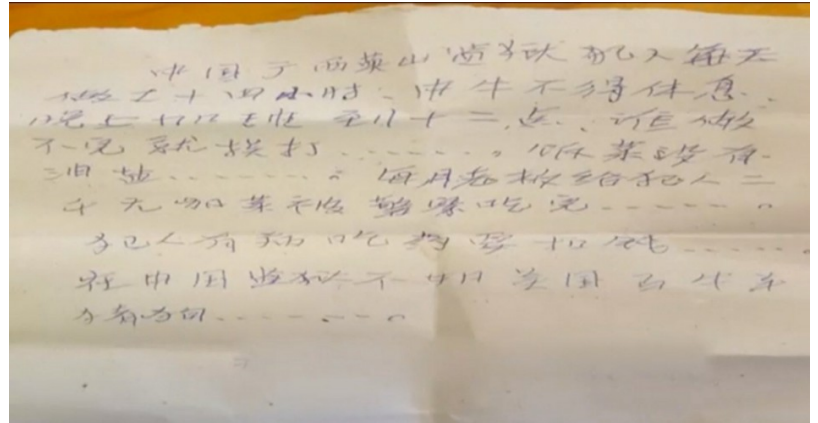 中国广西英山监狱犯人每天
做工十四小时、中午不得休息、
晚上加班至十二点、谁做
不完就挨打………。饭菜没有
油盐………。每月老板给犯人二
千元加菜被警察吃完………。
犯人有病吃药要扣钱………。
在中国监狱不如美国牛